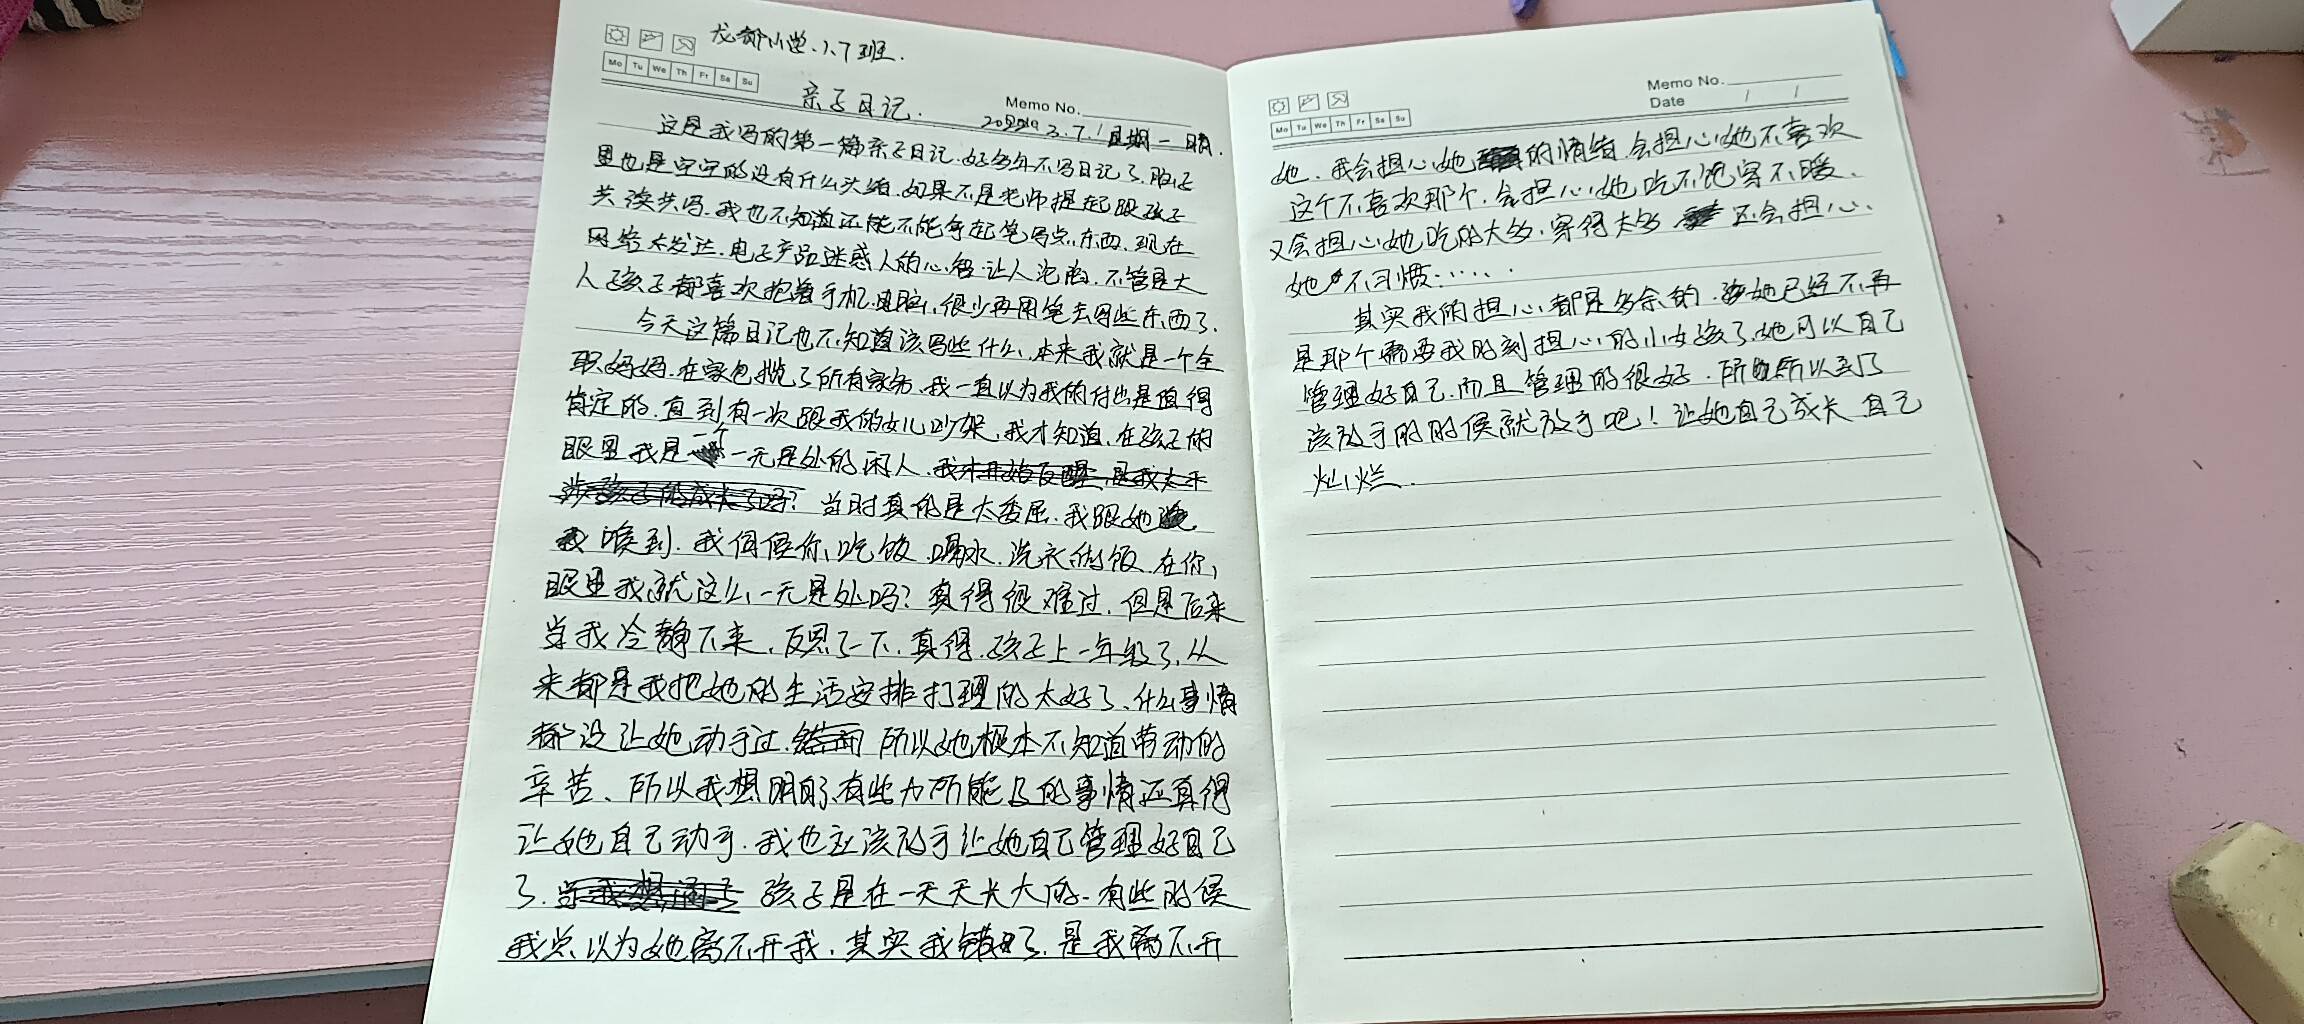 龙都小学.1.7班.
Mo Tu We Th Fr Sa Su
亲子日记.
Memo No.
3.7.星期一 晴.
这是我写的第一篇亲子日记.好多年不写日记了.脑子
里也是空空的没有什么头绪.如果不是老师提起跟孩子
共读共写.我也不知道还能不能拿起笔写点东西.现在
网络太发达.电子产品迷惑人的心智.让人沦陷.不管是大
人孩子都喜欢抱着手机.电脑.很少再用笔去写些东西了.
今天这篇日记也不知道该写些什么.本来我就是一个全
职妈妈.在家包揽了所有家务.我一直以为我的付出是值得
肯定的.直到有一次跟我的女儿吵架.我才知道.在孩子的
眼里我是一个一无是处的闲人.我才开始反醒.是我太干
涉孩子的成长了吗?当时真的是太委屈.我跟她
喊到.我伺候你吃饭.喝水.洗衣做饭.在你
眼里我就这么一无是处吗?真得很难过.但是后来
当我冷静下来.反思了一下.真得.孩子上一年级了.从
来都是我把她的生活安排打理的太好了、什么事情
都没让她动手过.所以她根本不知道劳动的
辛苦、所以我想明白了.有些力所能及的事情还真得
让她自己动手.我也应该放手让她自己管理好自己
了.孩子是在一天天长大的.有些时候
我总以为她离不开我.其实我错了.是我离不开
Memo No.
Date / /
Mo Tu We Th Fr Sa Su
她.我会担心她的情绪.会担心她不喜欢
这个不喜欢那个.会担心她吃不饱穿不暖.
又会担心她吃的太多.穿得太多 还会担心
她不习惯......
其实我的担心都是多余的.她已经不再
是那个需要我时刻担心的小女孩了.她可以自己
管理好自己.而且管理的很好.所以到了
该放手的时候就放手吧!让她自己成长 自己
灿烂.